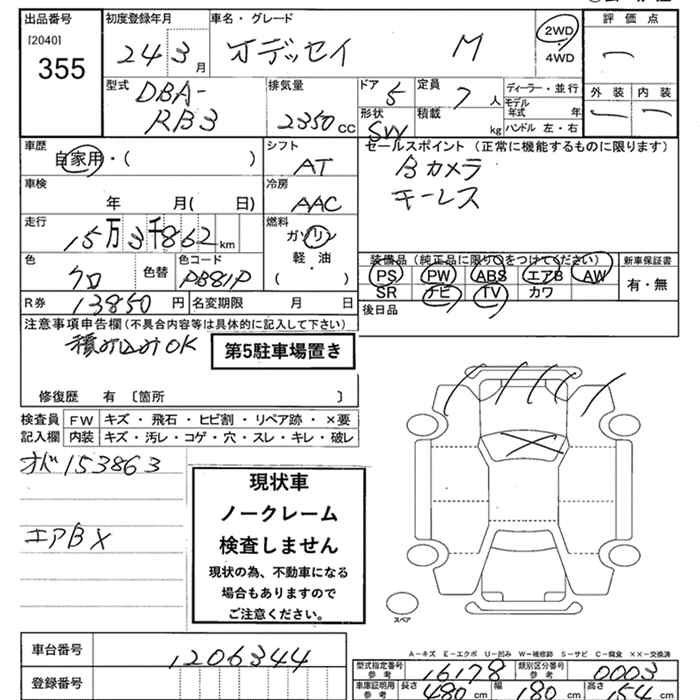 出品番号 初度登録年月 車名・グレード 評価点
[2040] 355 24 3月 オデッセイ M 2WD・4WD 一
型式 排気量 ドア 5 定員 7人 ディーラー・並行 外装 内装
DBA-RB3 2350cc 形状 SW 積載 kg モデル年式 年 一 一
ハンドル 左・右
車歴 シフト セールスポイント(正常に機能するものに限ります)
自家用・( ) AT Bカメラ
車検 冷房 キーレス
年 月( 日) AAC
走行 燃料
15万3千862km ガソリン
軽・油
( )
色 色替 色コード 装備品(純正品に限り○をつけてください) 新車保証書
クロ PB81P PS PW ABS エアB AW 有・無
SR ナビ TV カワ
R券 13850円 名変期限 月 日 後日品
注意事項申告欄(不具合内容等は具体的に記入して下さい)
積み込みOK
第5駐車場置き
修復歴 有 〔箇所 〕
検査員 FW キズ・飛石・ヒビ割・リペア跡・×要
記入欄 内装 キズ・汚レ・コゲ・穴・スレ・キレ・破レ
オド153863
現状車
ノークレーム
検査しません
エアB X
現状の為、不動車になる
場合もありますので
ご注意ください。
スペア
車台番号 1206344
A-キズ E-エクボ U-凹み W-補修跡 S-サビ C-腐食 ××-交換済
型式指定番号 参考 16178 類別区分番号 参考 0003
登録番号
車庫証明用 参考 長さ 480cm 幅 180cm 高さ 154cm